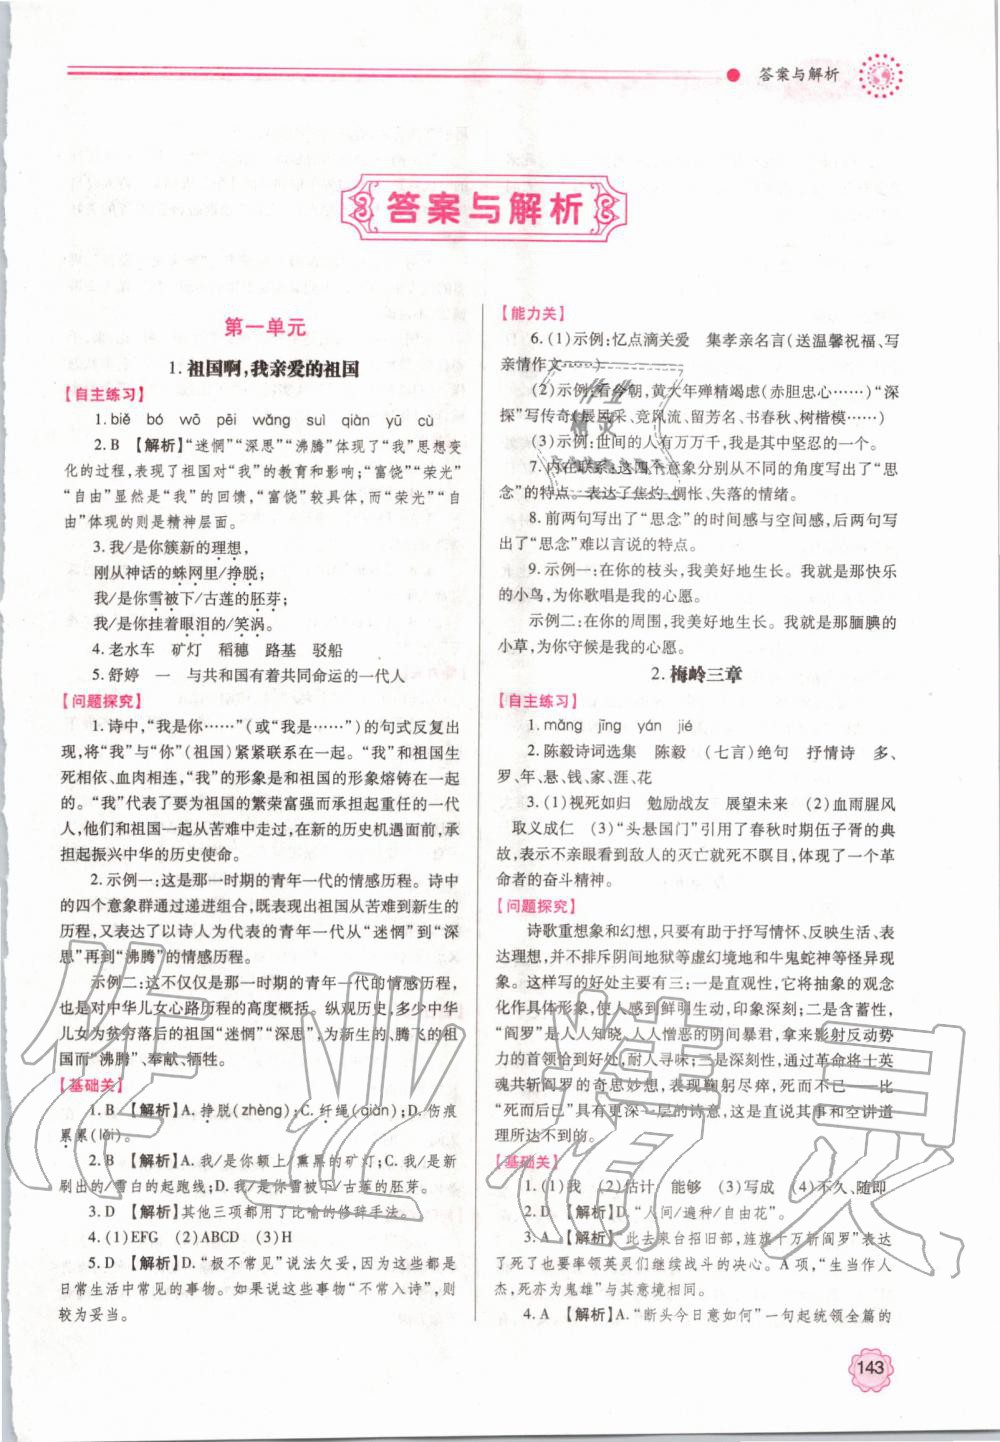 答案与解析
答案与解析
第一单元
1. 祖国啊,我亲爱的祖国
【自主练习】
1. biě bó wō pēi wǎng suì qiàn yū cù
2. B 【解析】“迷惘”“深思”“沸腾”体现了“我”思想变
化的过程,表现了祖国对“我”的教育和影响;“富饶”“荣光”
“自由”显然是“我”的回馈,“富饶”较具体,而“荣光”“自
由”体现的则是精神层面。
3. 我/是你簇新的理想,
刚从神话的蛛网里/挣脱;
我/是你雪被下/古莲的胚芽;
我/是你挂着眼泪的/笑涡。
4. 老水车 矿灯 稻穗 路基 驳船
5. 舒婷 一 与共和国有着共同命运的一代人
【问题探究】
1. 诗中,“我是你……”(或“我是……”)的句式反复出
现,将“我”与“你”(祖国)紧紧联系在一起。“我”和祖国生
死相依、血肉相连,“我”的形象是和祖国的形象熔铸在一起
的。“我”代表了要为祖国的繁荣富强而承担起重任的一代
人,他们和祖国一起从苦难中走过,在新的历史机遇面前,承
担起振兴中华的历史使命。
2. 示例一:这是那一时期的青年一代的情感历程。诗中
的四个意象群通过递进组合,既表现出祖国从苦难到新生的
历程,又表达了以诗人为代表的青年一代从“迷惘”到“深
思”再到“沸腾”的情感历程。
示例二:这不仅仅是那一时期的青年一代的情感历程,
也是对中华儿女心路历程的高度概括。纵观历史,多少中华
儿女为贫穷落后的祖国“迷惘”“深思”,为新生的、腾飞的祖
国而“沸腾”、奉献、牺牲。
【基础关】
1. B 【解析】A. 挣脱(zhèng);C. 纤绳(qiàn);D. 伤痕
累累(lěi)。
2. B 【解析】A. 我/是你额上/熏黑的矿灯;C. 我/是新
刷出的/雪白的起跑线;D. 我/是你雪被下/古莲的胚芽。
3. D 【解析】其他三项都用了比喻的修辞手法。
4. (1)EFG (2)ABCD (3)H
5. D 【解析】D. “极不常见”说法欠妥,因为这些都是
日常生活中常见的事物。如果说这些事物“不常入诗”,则
较为妥当。
【能力关】
6. (1)示例:忆点滴关爱 集孝亲名言(送温馨祝福、写
亲情作文……)
(2)示例:看今朝,黄大年殚精竭虑(赤胆忠心……)“深
探”写传奇(展风采、竞风流、留芳名、书春秋、树楷模……)
(3)示例:世间的人有万万千,我是其中坚忍的一个。
7. 内在联系:这四个意象分别从不同的角度写出了“思
念”的特点。表达了焦灼、惆怅、失落的情绪。
8. 前两句写出了“思念”的时间感与空间感,后两句写
出了“思念”难以言说的特点。
9. 示例一:在你的枝头,我美好地生长。我就是那快乐
的小鸟,为你歌唱是我的心愿。
示例二:在你的周围,我美好地生长。我就是那腼腆的
小草,为你守候是我的心愿。
2. 梅岭三章
【自主练习】
1. mǎng jīng yán jié
2. 陈毅诗词选集 陈毅 (七言)绝句 抒情诗 多、
罗、年、悬、钱、家、涯、花
3. (1)视死如归 勉励战友 展望未来 (2)血雨腥风
取义成仁 (3)“头悬国门”引用了春秋时期伍子胥的典
故,表示不亲眼看到敌人的灭亡就死不瞑目,体现了一个革
命者的奋斗精神。
【问题探究】
诗歌重想象和幻想,只要有助于抒写情怀、反映生活、表
达理想,并不排斥阴间地狱等虚幻境地和牛鬼蛇神等怪异形
象。这样写的好处主要有三:一是直观性,将抽象的观念
化作具体形象,使人感到鲜明生动,印象深刻;二是含蓄性,
“阎罗”是人人知晓、人人憎恶的阴间暴君,拿来影射反动势
力的首领恰到好处,耐人寻味;三是深刻性,通过革命将士英
魂共斩阎罗的奇思妙想,表现鞠躬尽瘁,死而不已——比
“死而后已”具有更深一层的诗意,这是直说其事和空讲道
理所达不到的。
【基础关】
1. (1)我 (2)估计 能够 (3)写成 (4)不久、随即
2. D 【解析】D. “人间/遍种/自由花”。
3. A 【解析】“此去泉台招旧部,旌旗十万斩阎罗”表达
了死了也要率领英灵们继续战斗的决心。A 项,“生当作人
杰,死亦为鬼雄”与其意境相同。
4. A 【解析】A. “断头今日意如何”一句起统领全篇的
143